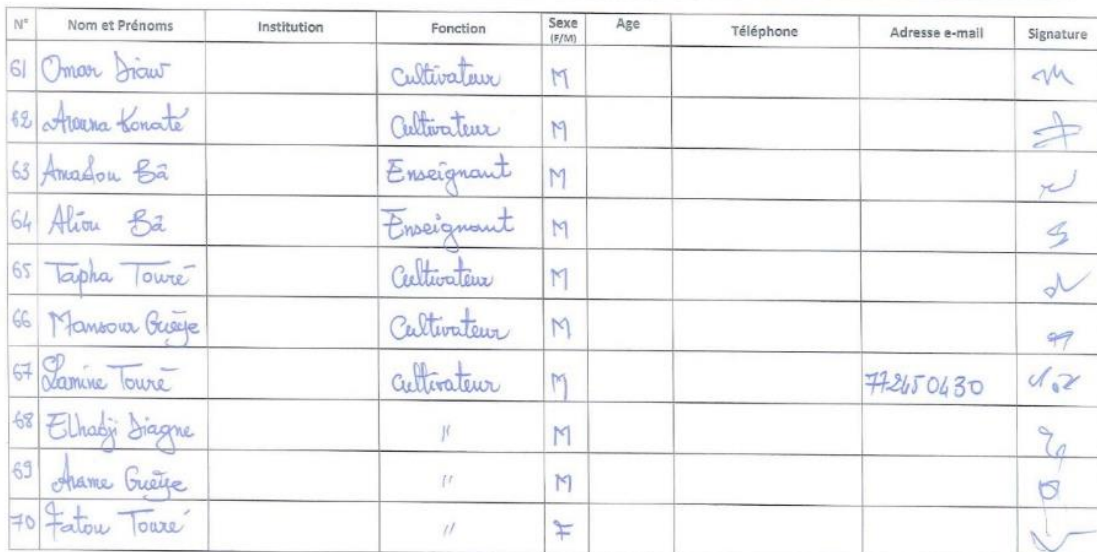 N° Nom et Prénoms Institution Fonction Sexe (F/M) Age Téléphone Adresse e-mail Signature
61 Omar Diaw Cultivateur M
62 Arouna Konaté Cultivateur M
63 Amadou Bâ Enseignant M
64 Aliou Bâ Enseignant M
65 Tapha Touré Cultivateur M
66 Mansour Guèye Cultivateur M
67 Lamine Touré Cultivateur M 772450430
68 Elhadji Diagne " M
69 Arame Guèye " M
70 Fatou Touré " F